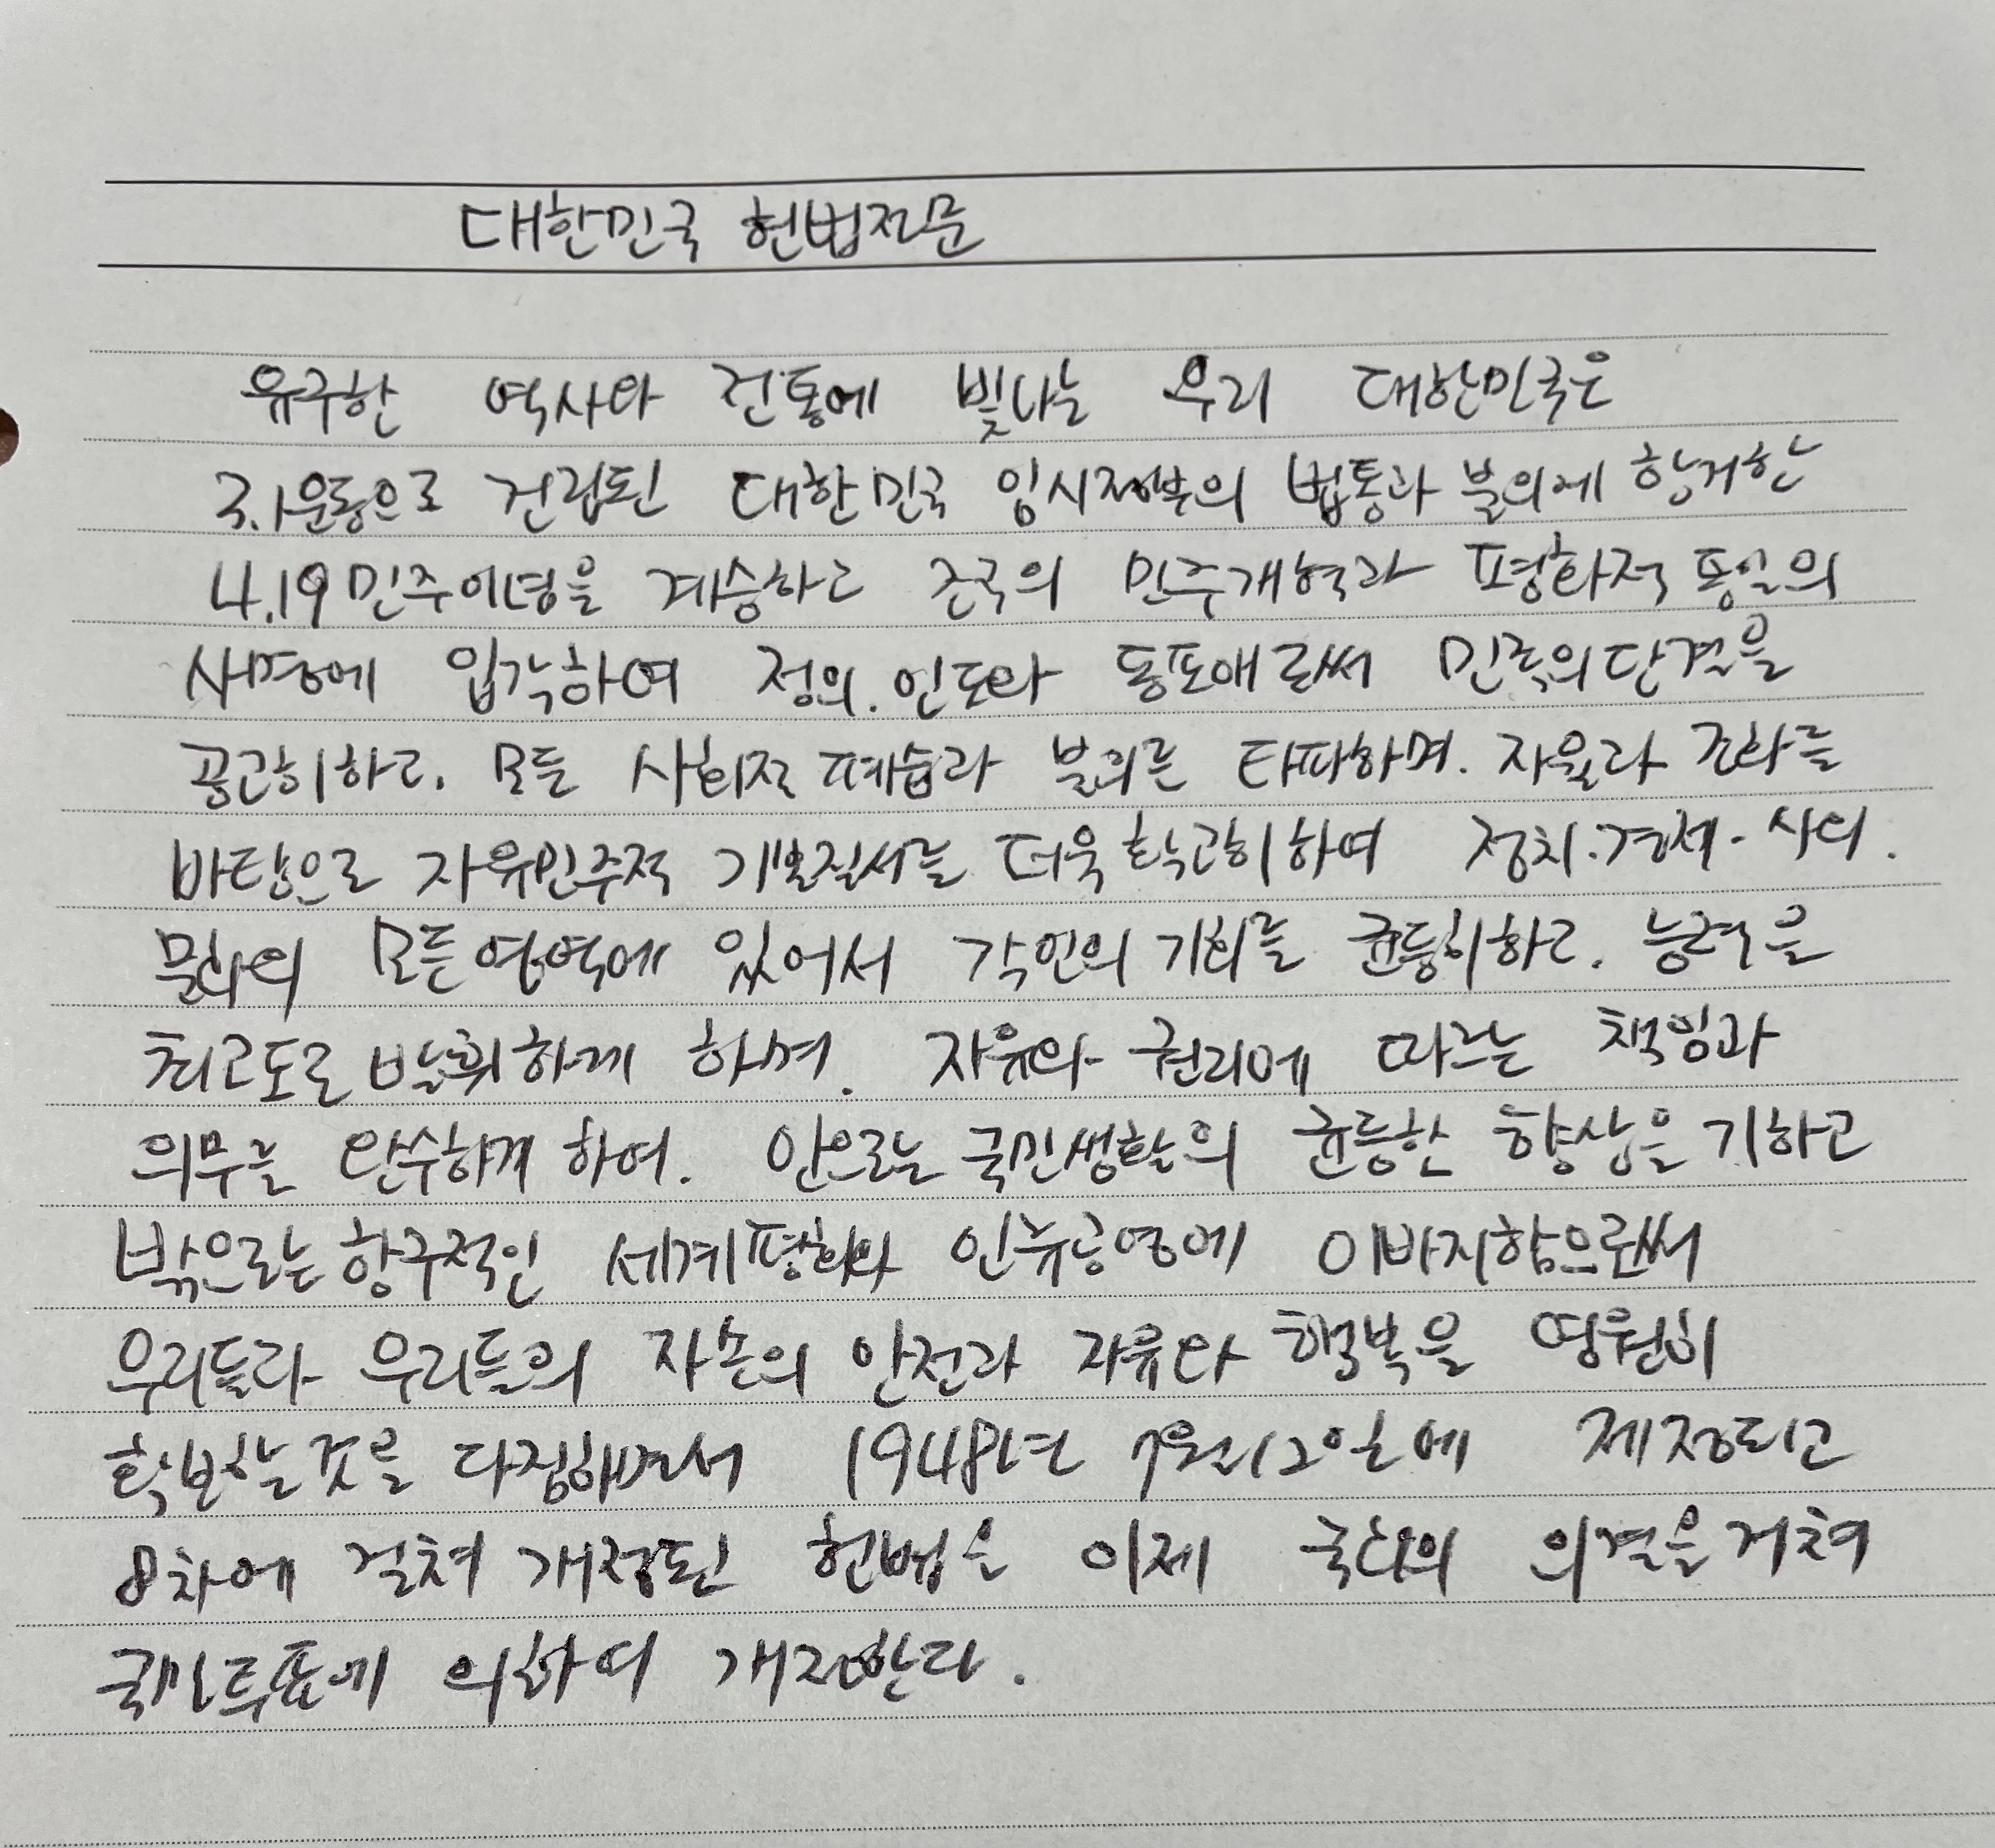 대한민국 헌법전문
유구한 역사와 전통에 빛나는 우리 대한민국은
3.1운동으로 건립된 대한민국 임시정부의 법통과 불의에 항거한
4.19민주이념을 계승하고 조국의 민주개혁과 평화적 통일의
사명에 입각하여 정의.인도와 동포애로써 민족의단결을
공고히하고. 모든 사회적 폐습과 불의를 타파하며. 자율과 조화를
바탕으로 자유민주적 기본질서를 더욱 확고히하여 정치.경제.사회.
문화의 모든영역에 있어서 각인의 기회를 균등히하고. 능력을
최고도로 발휘하게 하며. 자유와 권리에 따르는 책임과
의무를 완수하게 하여. 안으로는 국민생활의 균등한 향상을 기하고
밖으로는 항구적인 세계평화와 인류공영에 이바지함으로써
우리들과 우리들의 자손의 안전과 자유와 행복을 영원히
확보하는 것을 다짐하면서 1948년 7월12일에 제정되고
8차에 걸쳐 개정된 헌법을 이제 국회의 의결을 거쳐
국민투표에 의하여 개정한다.